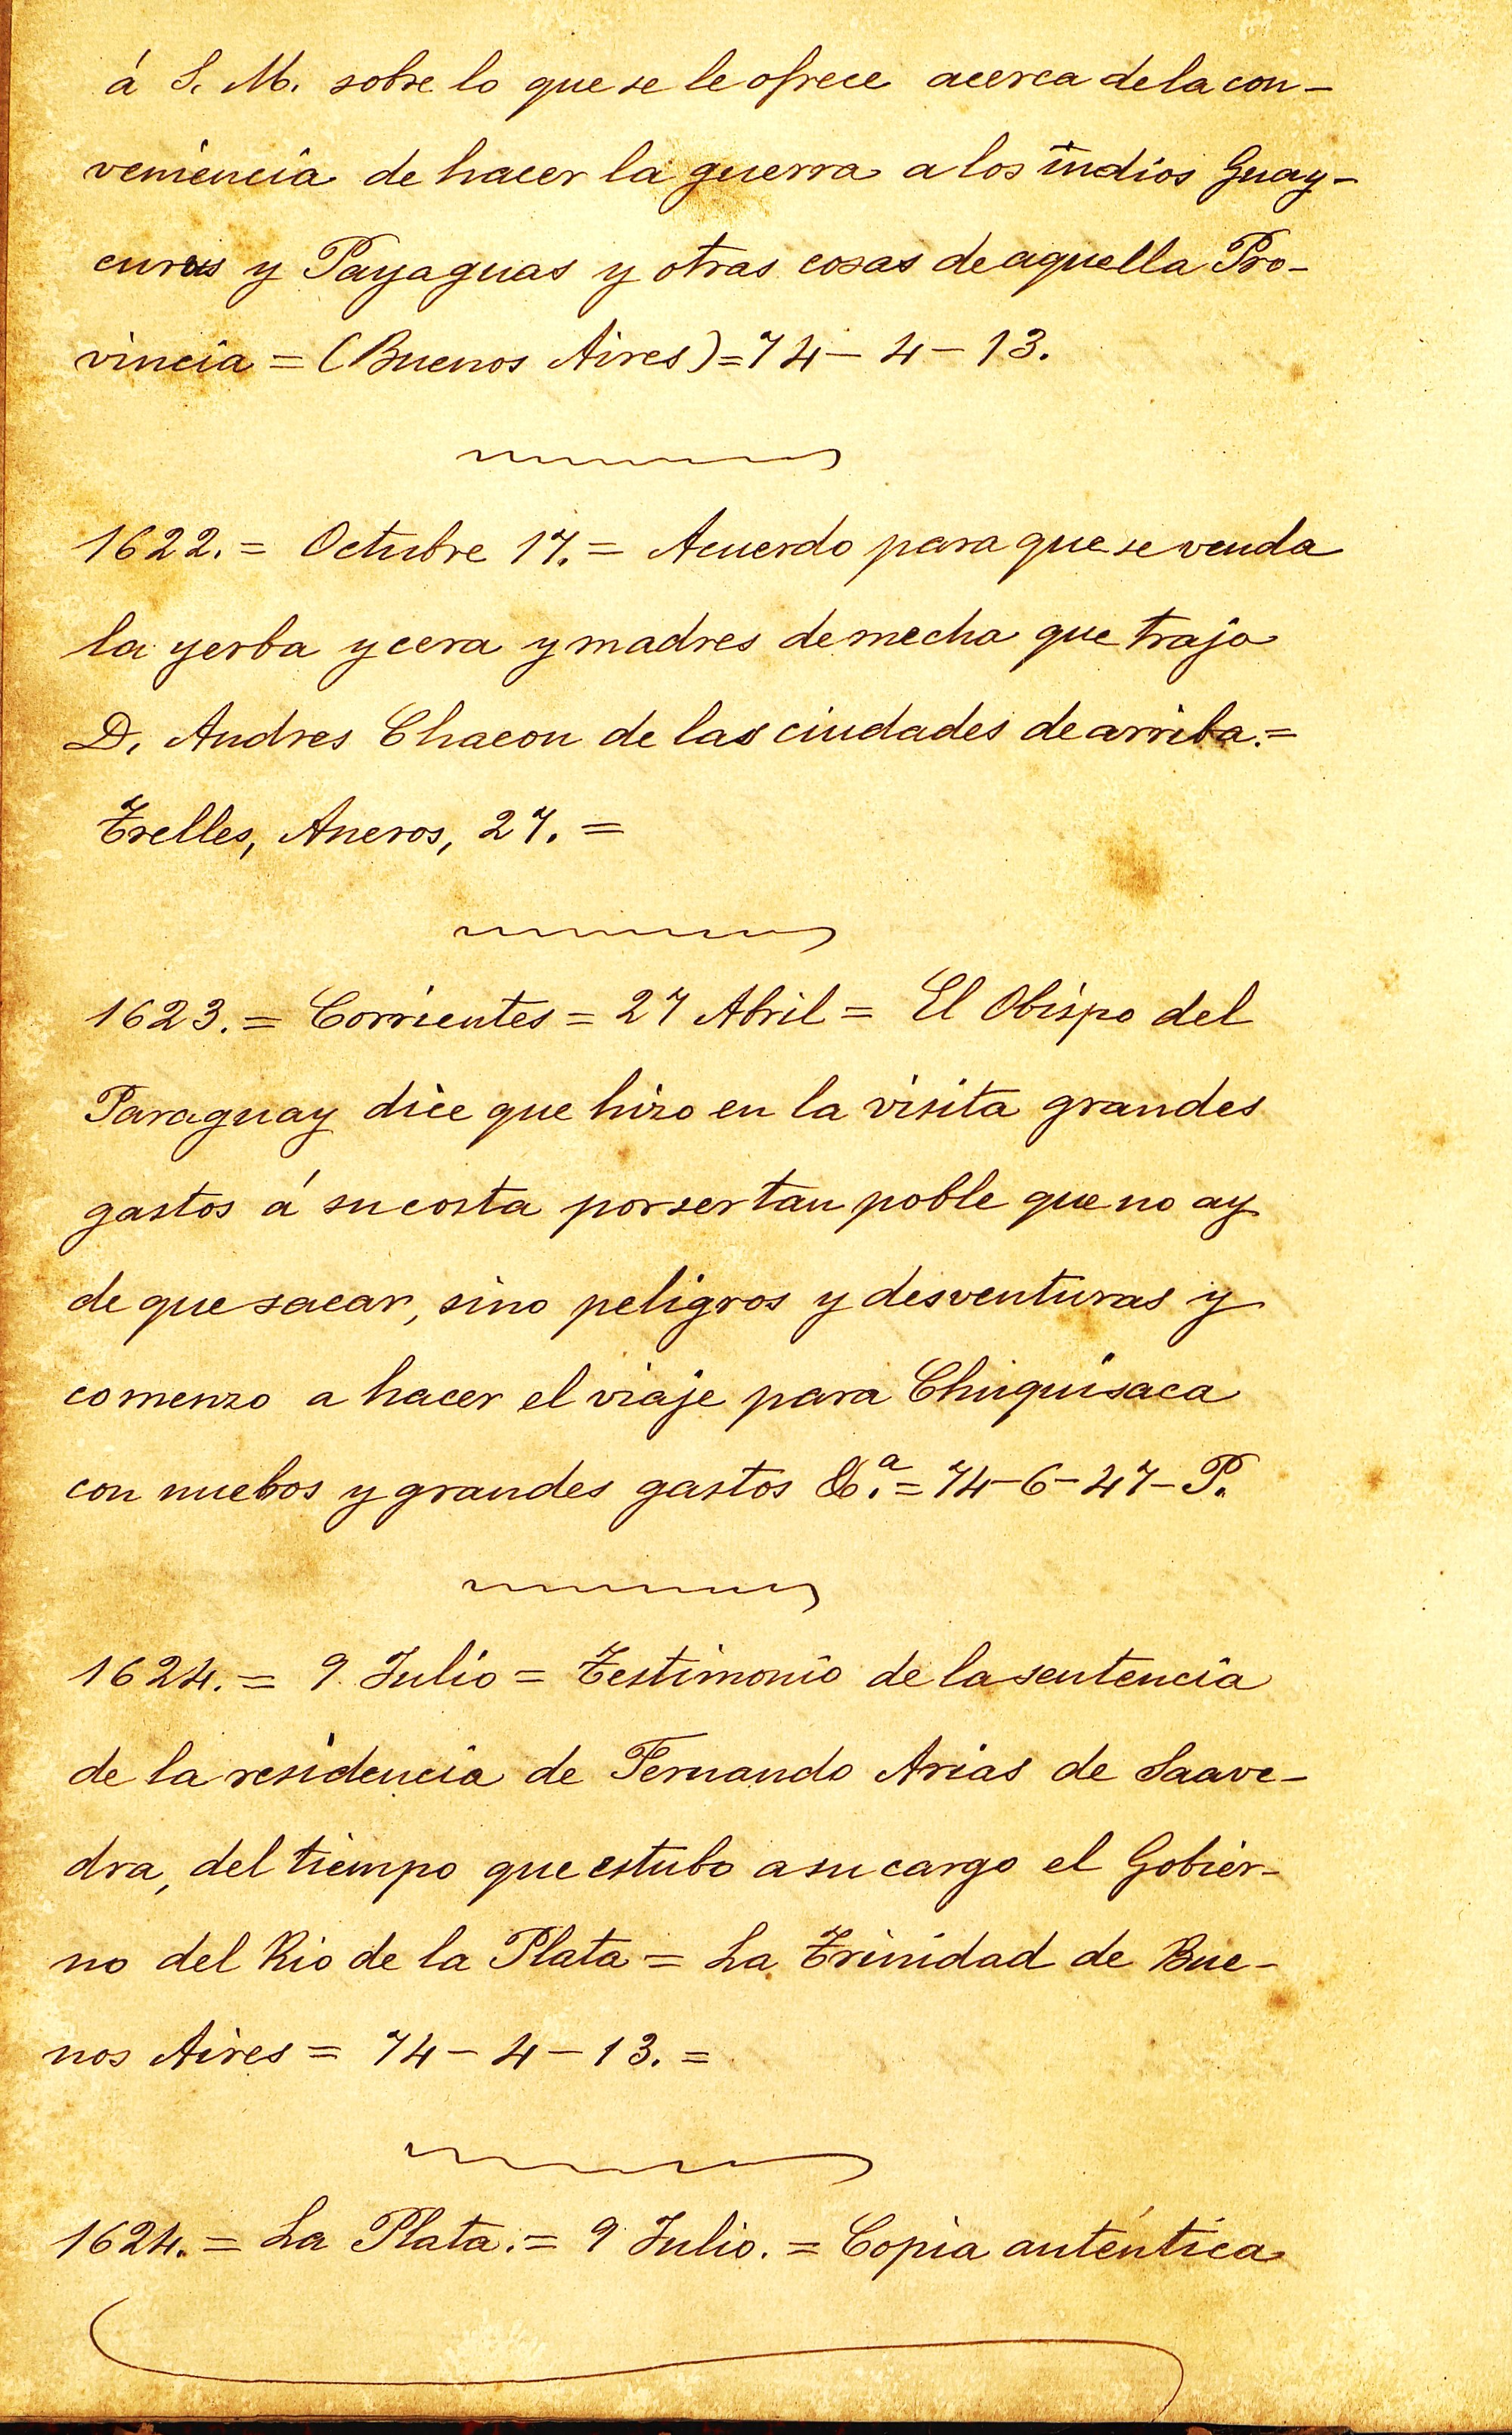 á S. M. sobre lo que se le ofrece acerca de la con-
veniencia de hacer la guerra a los indios Guay-
curus y Payaguas y otras cosas de aquella Pro-
vincia = (Buenos Aires) = 74 - 4 - 13.
1622. = Octubre 17. = Acuerdo para que se venda
la yerba y cera y madres de mecha que trajo
D. Andres Chacon de las ciudades de arriba. =
Trelles, Aneros, 27. =
1623. = Corrientes = 27 Abril = El Obispo del
Paraguay dice que hizo en la visita grandes
gastos á su costa por ser tan poble que no ay
de que sacar, sino peligros y desventuras y
comenzo a hacer el viaje para Chuquisaca
con nuebos y grandes gastos &.ª = 74 - 6 - 47 - P.
1624. = 9 Julio = Testimonio de la sentencia
de la residencia de Fernando Arias de Saave-
dra, del tiempo que estubo a su cargo el Gobier-
no del Rio de la Plata = La Trinidad de Bue-
nos Aires = 74 - 4 - 13. =
1624. = La Plata. = 9 Julio. = Copia auténtica